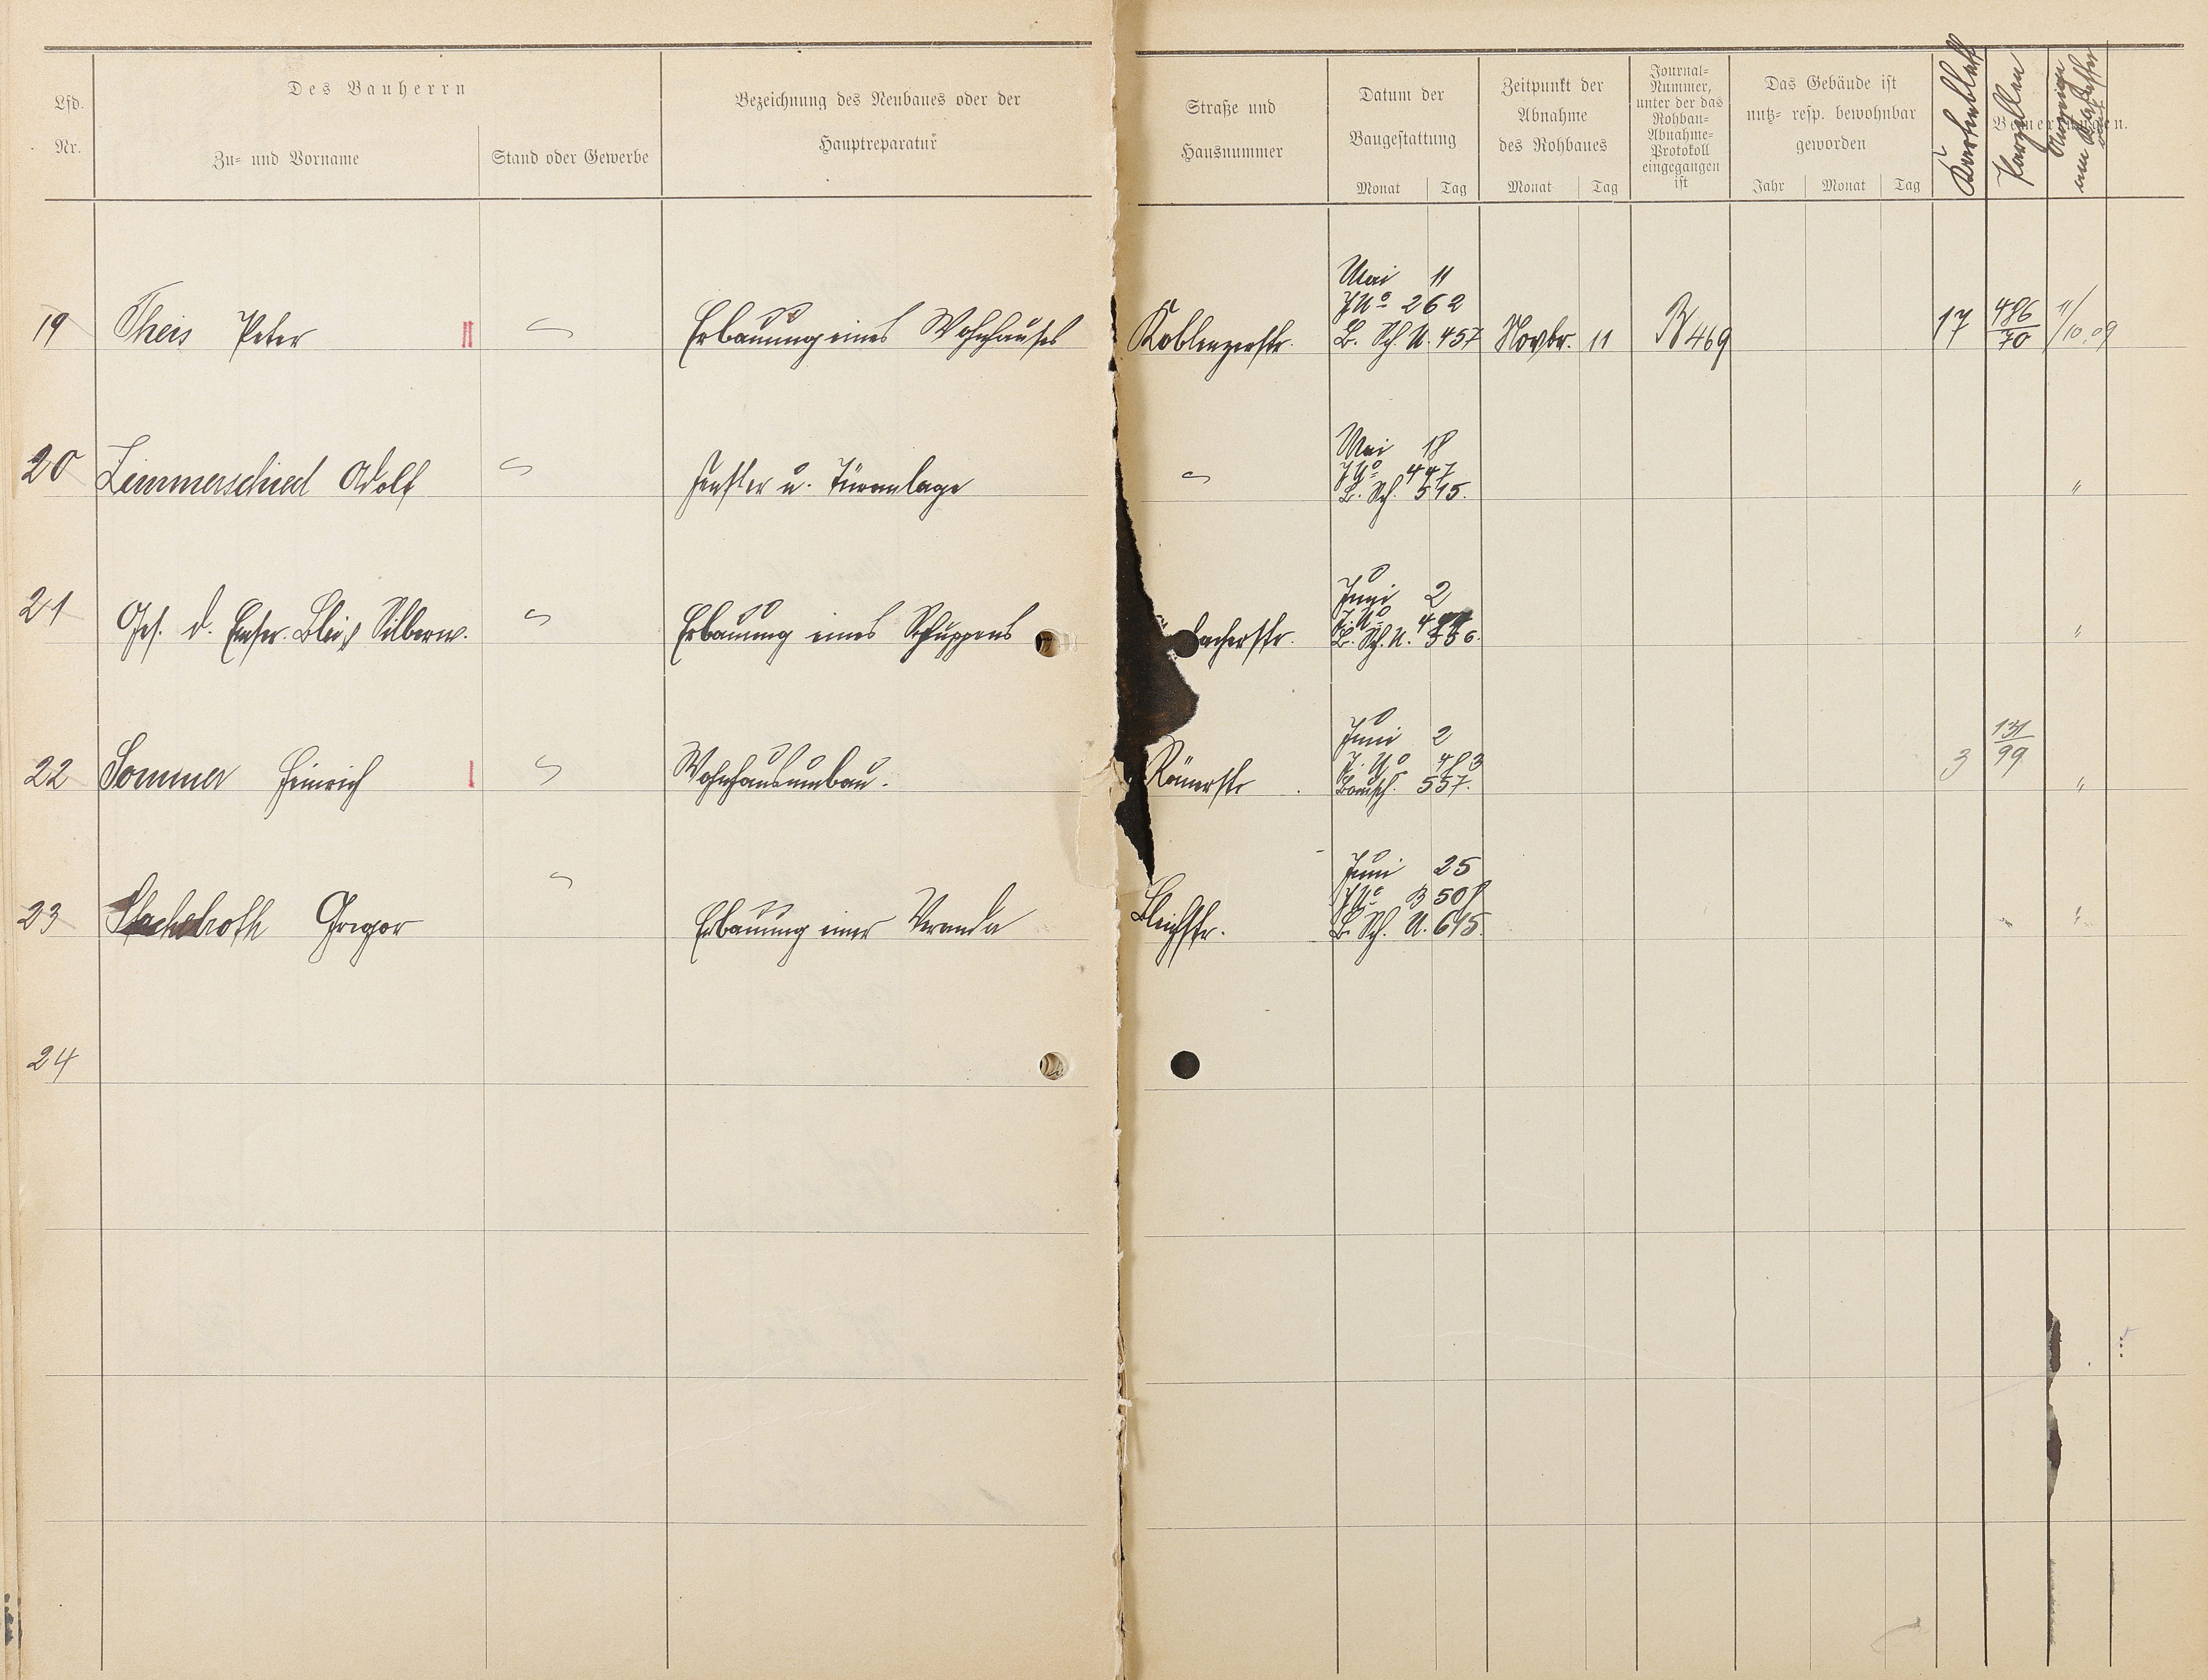 Lfd.
Nr.
Des Bauherrn
Zu- und Vorname
Stand oder Gewerbe
Bezeichnung des Neubaues oder der
Hauptreparatur
Straße und
Hausnummer
Datum der
Baugestattung
Monat
Tag
Zeitpunkt der
Abnahme
des Rohbaues
Monat
Tag
Journal-
Nummer,
unter der das
Rohbau-
Abnahme-
Protokoll
eingegangen
ist
Das Gebäude ist
nutz- resp. bewohnbar
geworden
Jahr
Monat
Tag
Kartenblatt
Parzellen
Bemerkungen.
Anzeige
19 Theis Peter II Erbauung eines Wohnhauses Koblenzerstr. Mai 11
J No 262
B. Sch. N. 457 Novbr. 11 B 469 17 486/70 11/10.09
20 Zimmerschied Adolf Fenster u. Türanlage Mai 18
J No 447
B. Sch. 515. "
21 Ges. d. Emser. Blei & Silberw. Erbauung eines Schuppens bacherstr. Juni 2
J. No
B. Sch. N. 556. "
22 Sommer Heinrich I Wohnhausumbau. Römerstr Juni 2
J. No 483
Bausch. 557. 3 131/99 "
23 Stachelroth Gregor Erbauung einer Veranda Bleichstr. Juni 25
J No B 508
B. Sch. N. 615. "
24